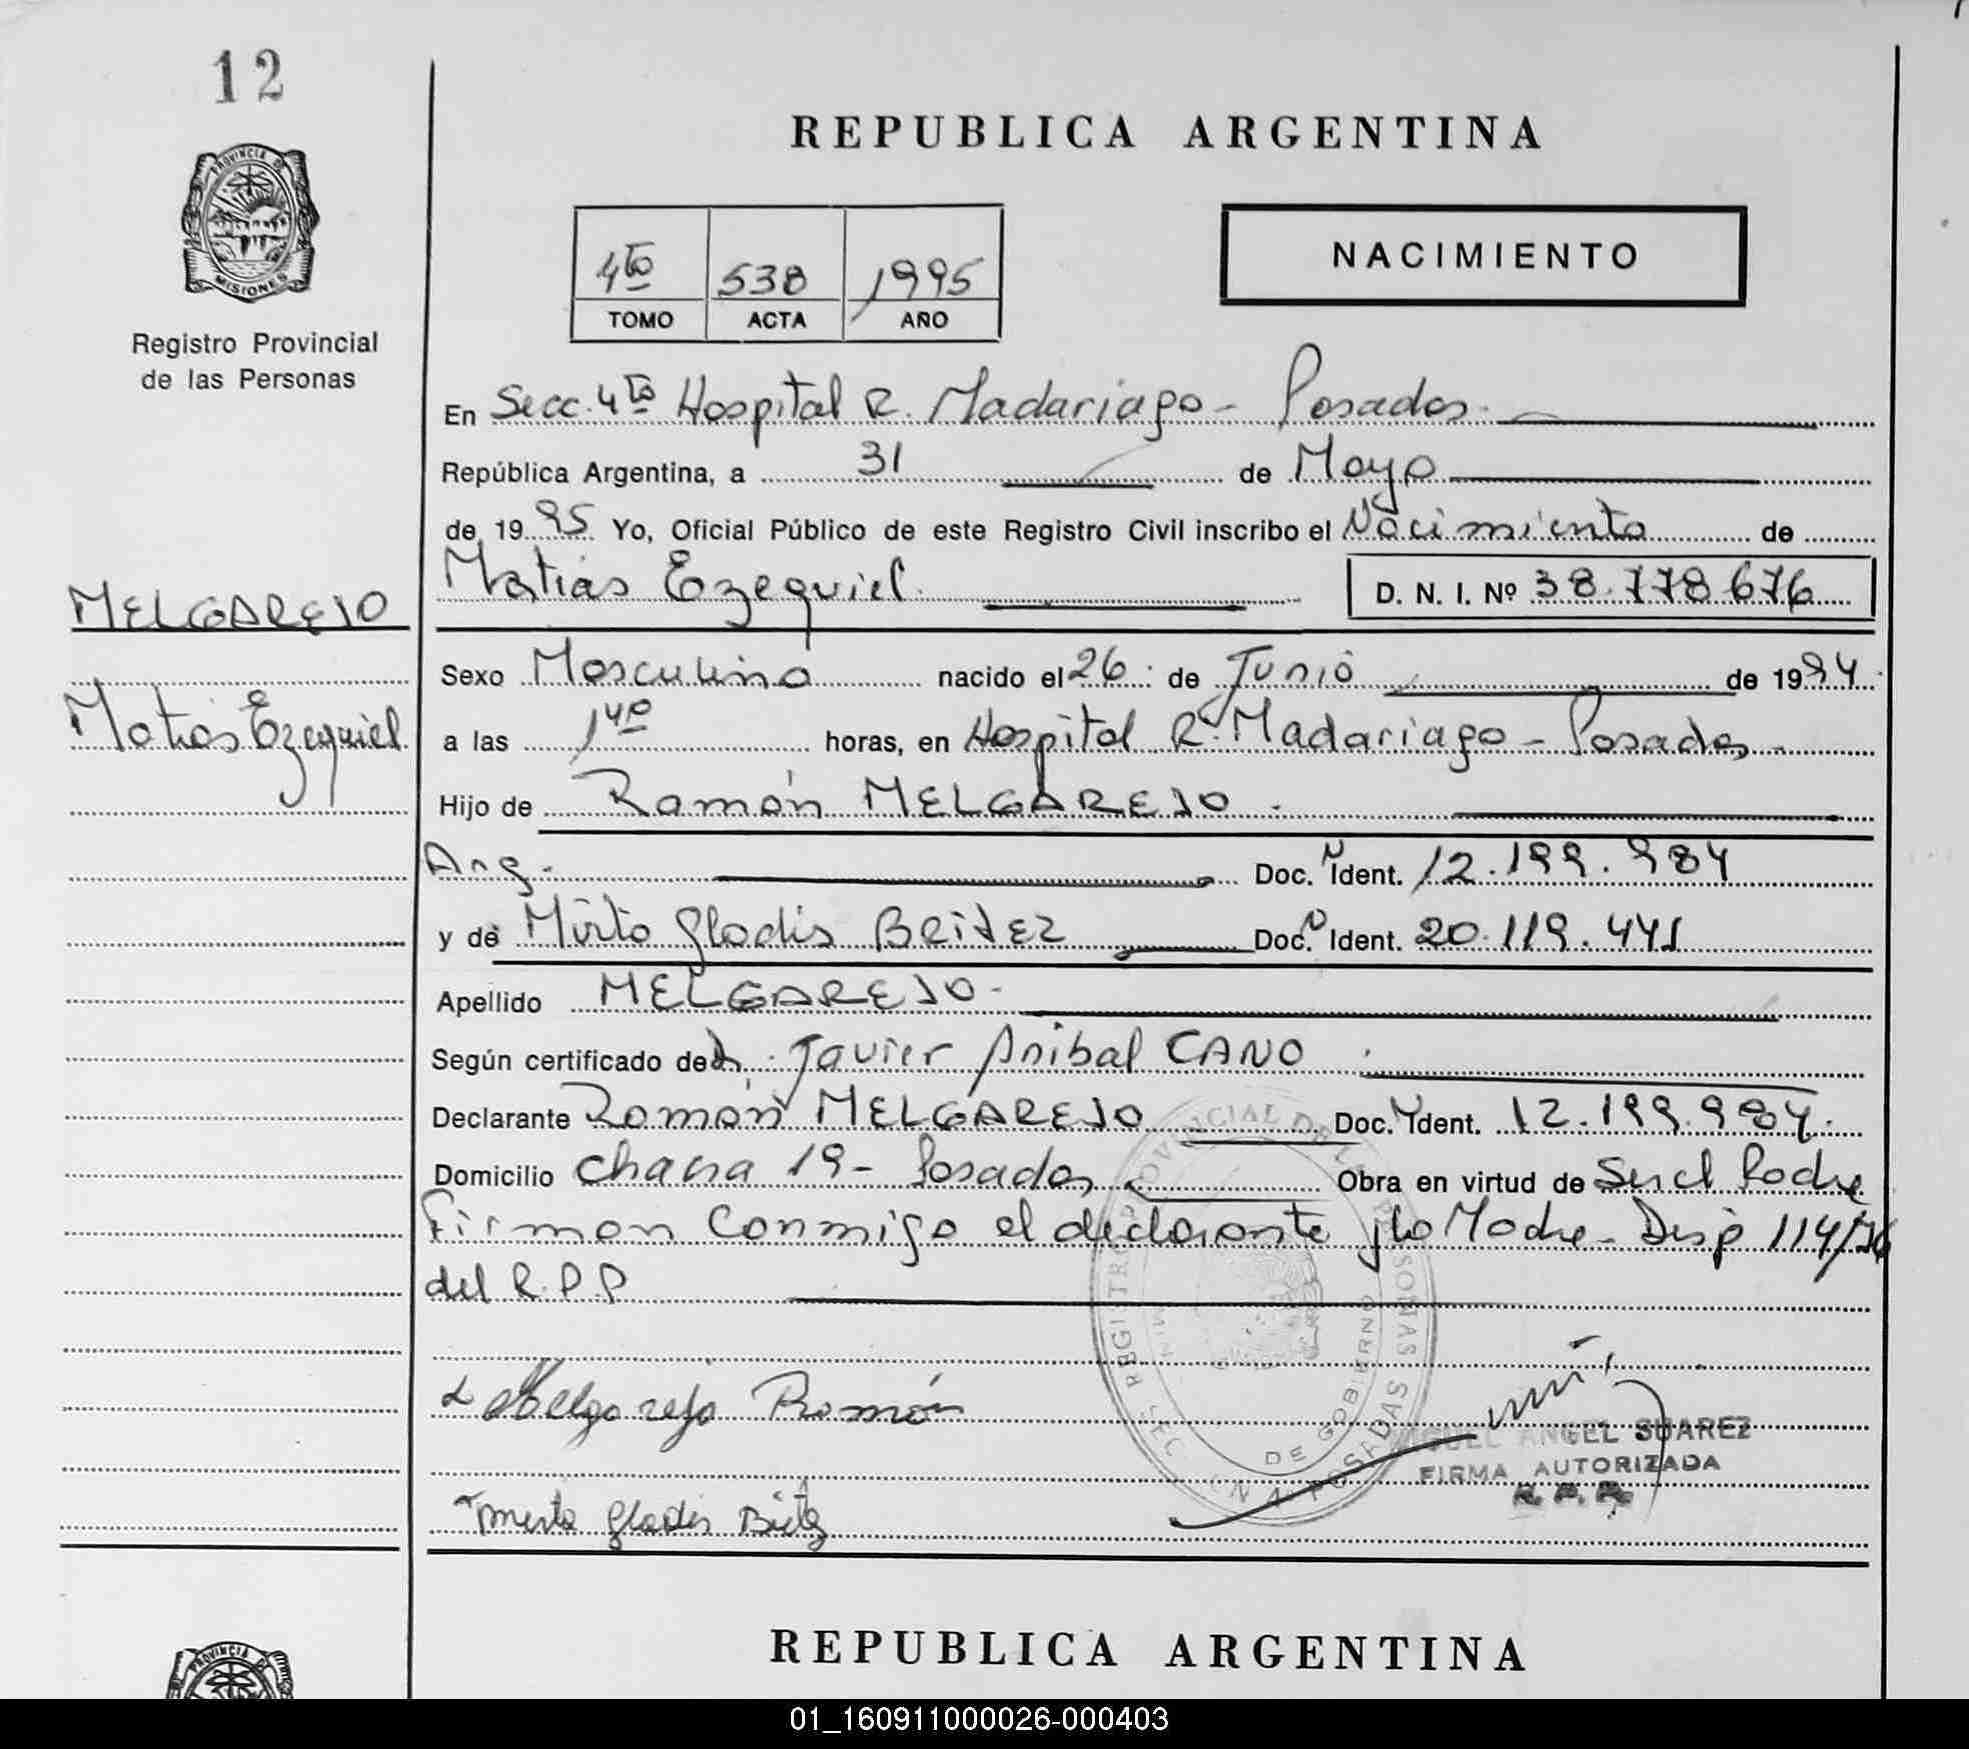 12
PROVINCIA DE
MISIONES
Registro Provincial
de las Personas
REPUBLICA ARGENTINA
4to 538 1995
TOMO ACTA AÑO
NACIMIENTO
En Secc. 4to Hospital R. Madariaga - Posadas
República Argentina, a 31 de Mayo
de 1995 Yo, Oficial Público de este Registro Civil inscribo el Nacimiento de
Matías Ezequiel D. N. I. Nº 38.778.676
MELGAREJO
Matías Ezequiel
Sexo Masculino nacido el 26 de Junio de 1994
a las horas, en Hospital R. Madariaga - Posadas -
Hijo de Ramón MELGAREJO
Arg. Doc. Ident. 12.199.984
y de Mirta Gladis BRITEZ Doc. Ident. 20.119.441
Apellido MELGAREJO
Según certificado de Dr. Javier Anibal CANO
Declarante Ramón MELGAREJO Doc. Ident. 12.199.984
Domicilio Chacra 19 - Posadas Obra en virtud de Ser el Padre
Firman Conmigo el declarante y la Madre - Disp 114/76
del R.P.P
Melgarejo Ramón
Mirta Gladis Britez
REGISTRO PROVINCIAL DE LAS PERSONAS
DE GOBIERNO
POSADAS
MIGUEL ANGEL SUAREZ
FIRMA AUTORIZADA
R. P. P.
REPUBLICA ARGENTINA
PROVINCIA DE
01_160911000026-000403